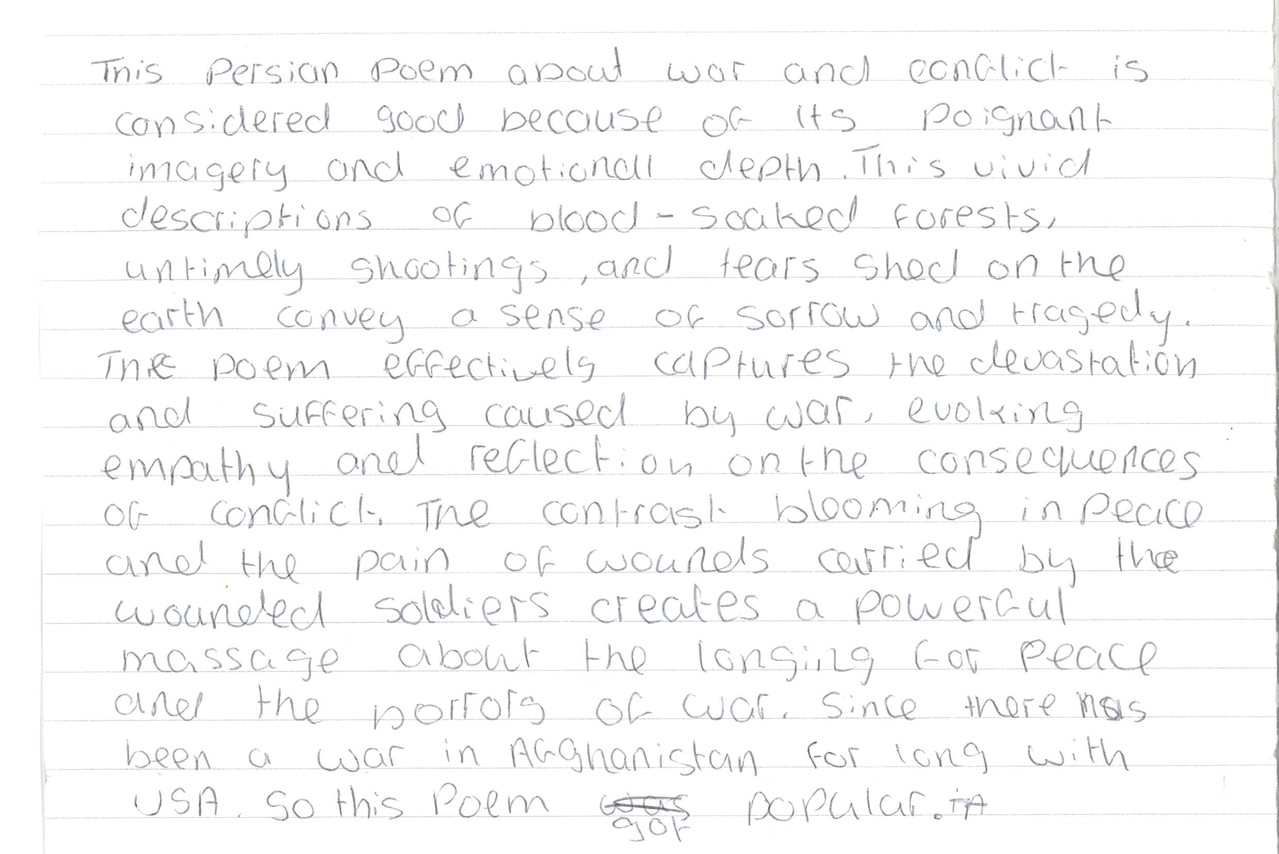 This Persian Poem about war and conflict is
considered good because of its poignant
imagery and emotionall depth. This vivid
descriptions of blood-soaked forests,
untimely shootings, and tears shed on the
earth convey a sense of sorrow and tragedy.
The poem effectively captures the devastation
and suffering caused by war, evoking
empathy and reflection on the consequences
of conflict. The contrast blooming in peace
and the pain of wounds carried by the
wounded soldiers creates a powerful
massage about the longing for peace
and the horrors of war. Since there has
been a war in Afghanistan for long with
USA. So this Poem got popular.